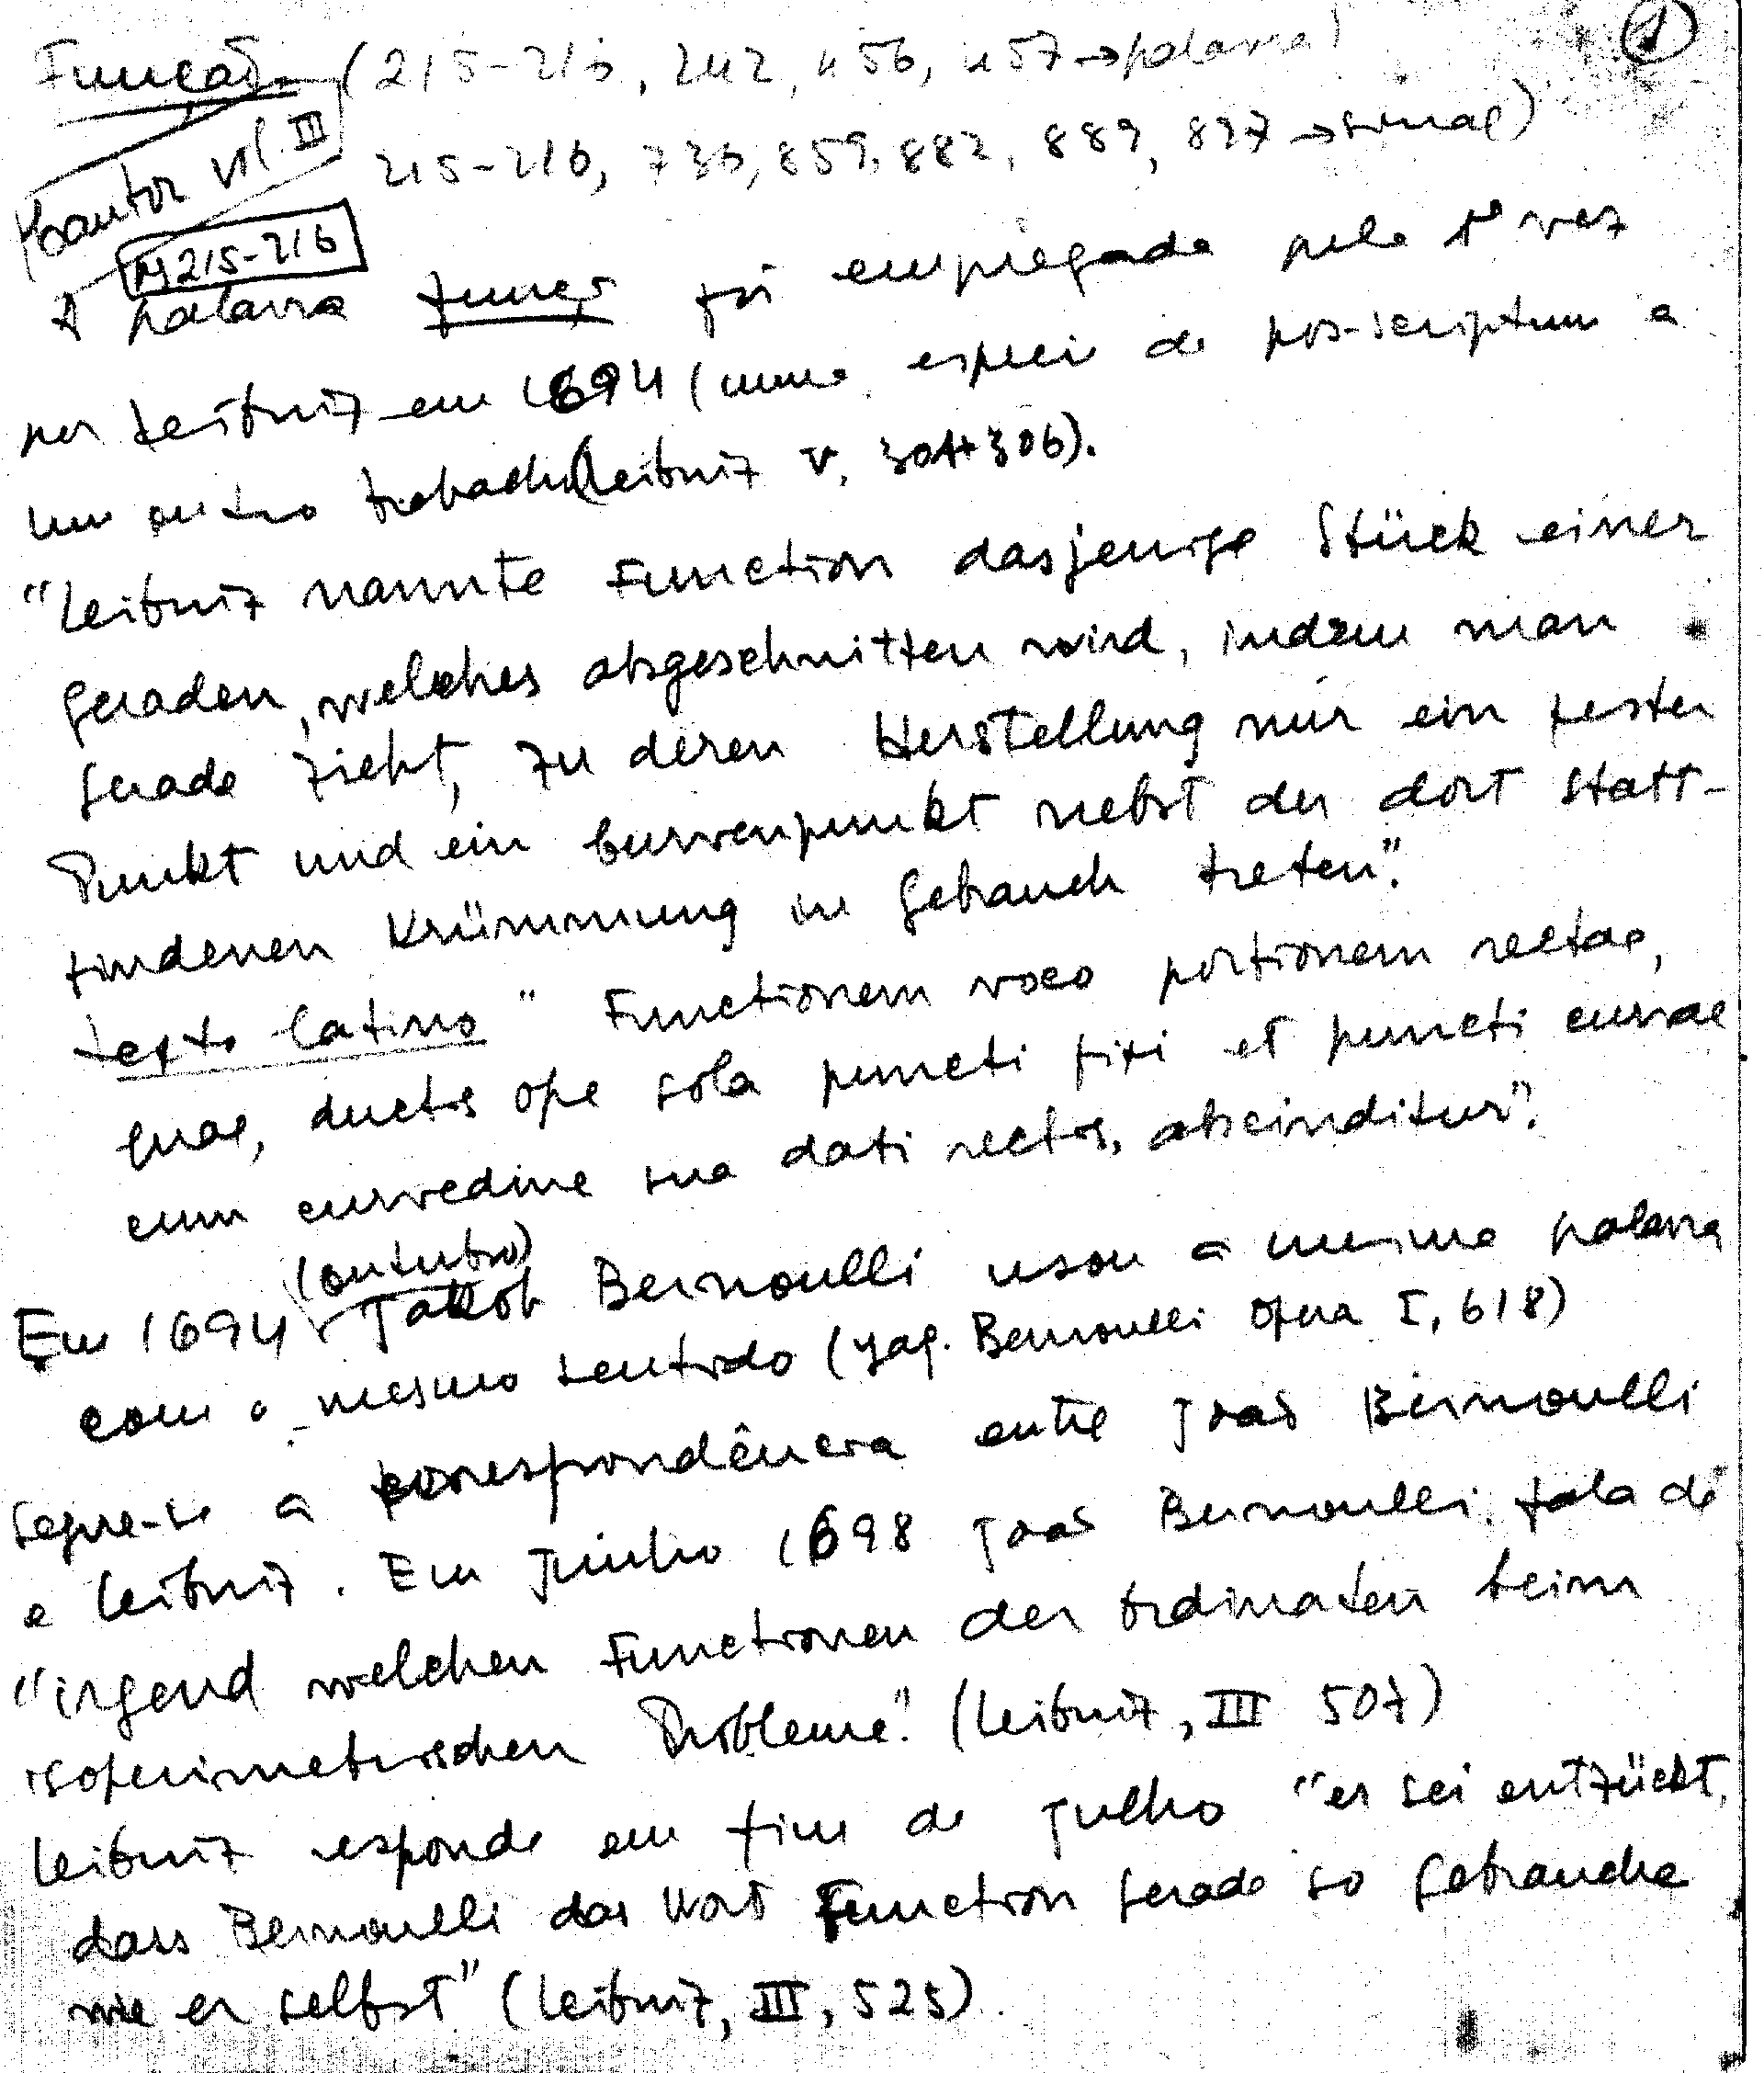 1
Função (215-216, 242, 456, 457 → palavra)
Cantor vol. III
215-216, 736, 859, 882, 889, 897 → sinal)
215-216
A palavra função foi empregada pela 1ª vez
por Leibniz em 1694 (numa especie de pos-scriptum a
um outro trabalho (Leibniz V, 304+306).
"Leibniz nannte Function dasjenige Stück einer
geraden, welches abgeschnitten wird, indem man
gerade zieht, zu deren Herstellung nur ein fester
Punkt und ein Curvenpunkt nebst der dort statt-
findenen Krümmung in Gebrauch treten".
texto latino " Functionem voco portionem rectae,
quae, ductis ope sola puncti fixi et puncti curvae
cum curvedine sua dati rectis, abscinditur".
(outubro)
Em 1694 Jakob Bernoulli usou a mesma palavra
com o mesmo sentido (Jac. Bernoulli Opera I, 618)
Segue-se a correspondência entre João Bernoulli
e Leibniz. Em Junho 1698 João Bernoulli fala de
"irgend welchen Functionen der Ordinaten beim
isoperimetrischen Probleme". (Leibniz, III 507)
Leibniz responde em fim de Julho "er sei entzückt,
dass Bernoulli das Wort Function gerade so gebrauche
wie er selbst" (Leibniz, III, 525).